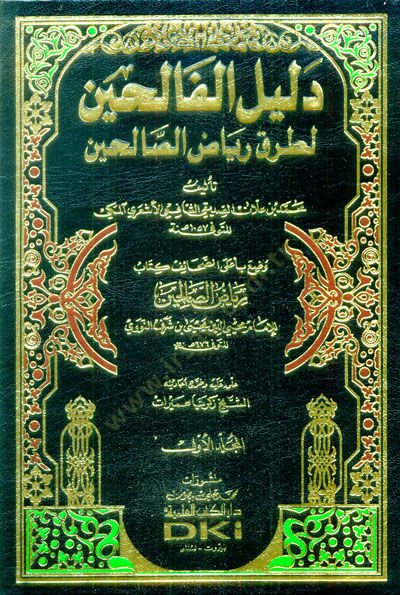 دليل الفالحين
لطرق رياض الصالحين
تأليف
محمد بن علان الصديقي الشافعي الأشعري المكي
المتوفى ١٠٥٧ هـ
وضع بأعلى الصحائف كتاب
رياض الصالحين
للإمام محيي الدين يحيى بن شرف النووي
المتوفى ٦٧٦ هـ
علق عليه وخرج أحاديثه
الشيخ زكريا عميرات
المجلد الأول
منشورات
محمد علي بيضون
دار الكتب العلمية
DKi
بيروت - لبنان